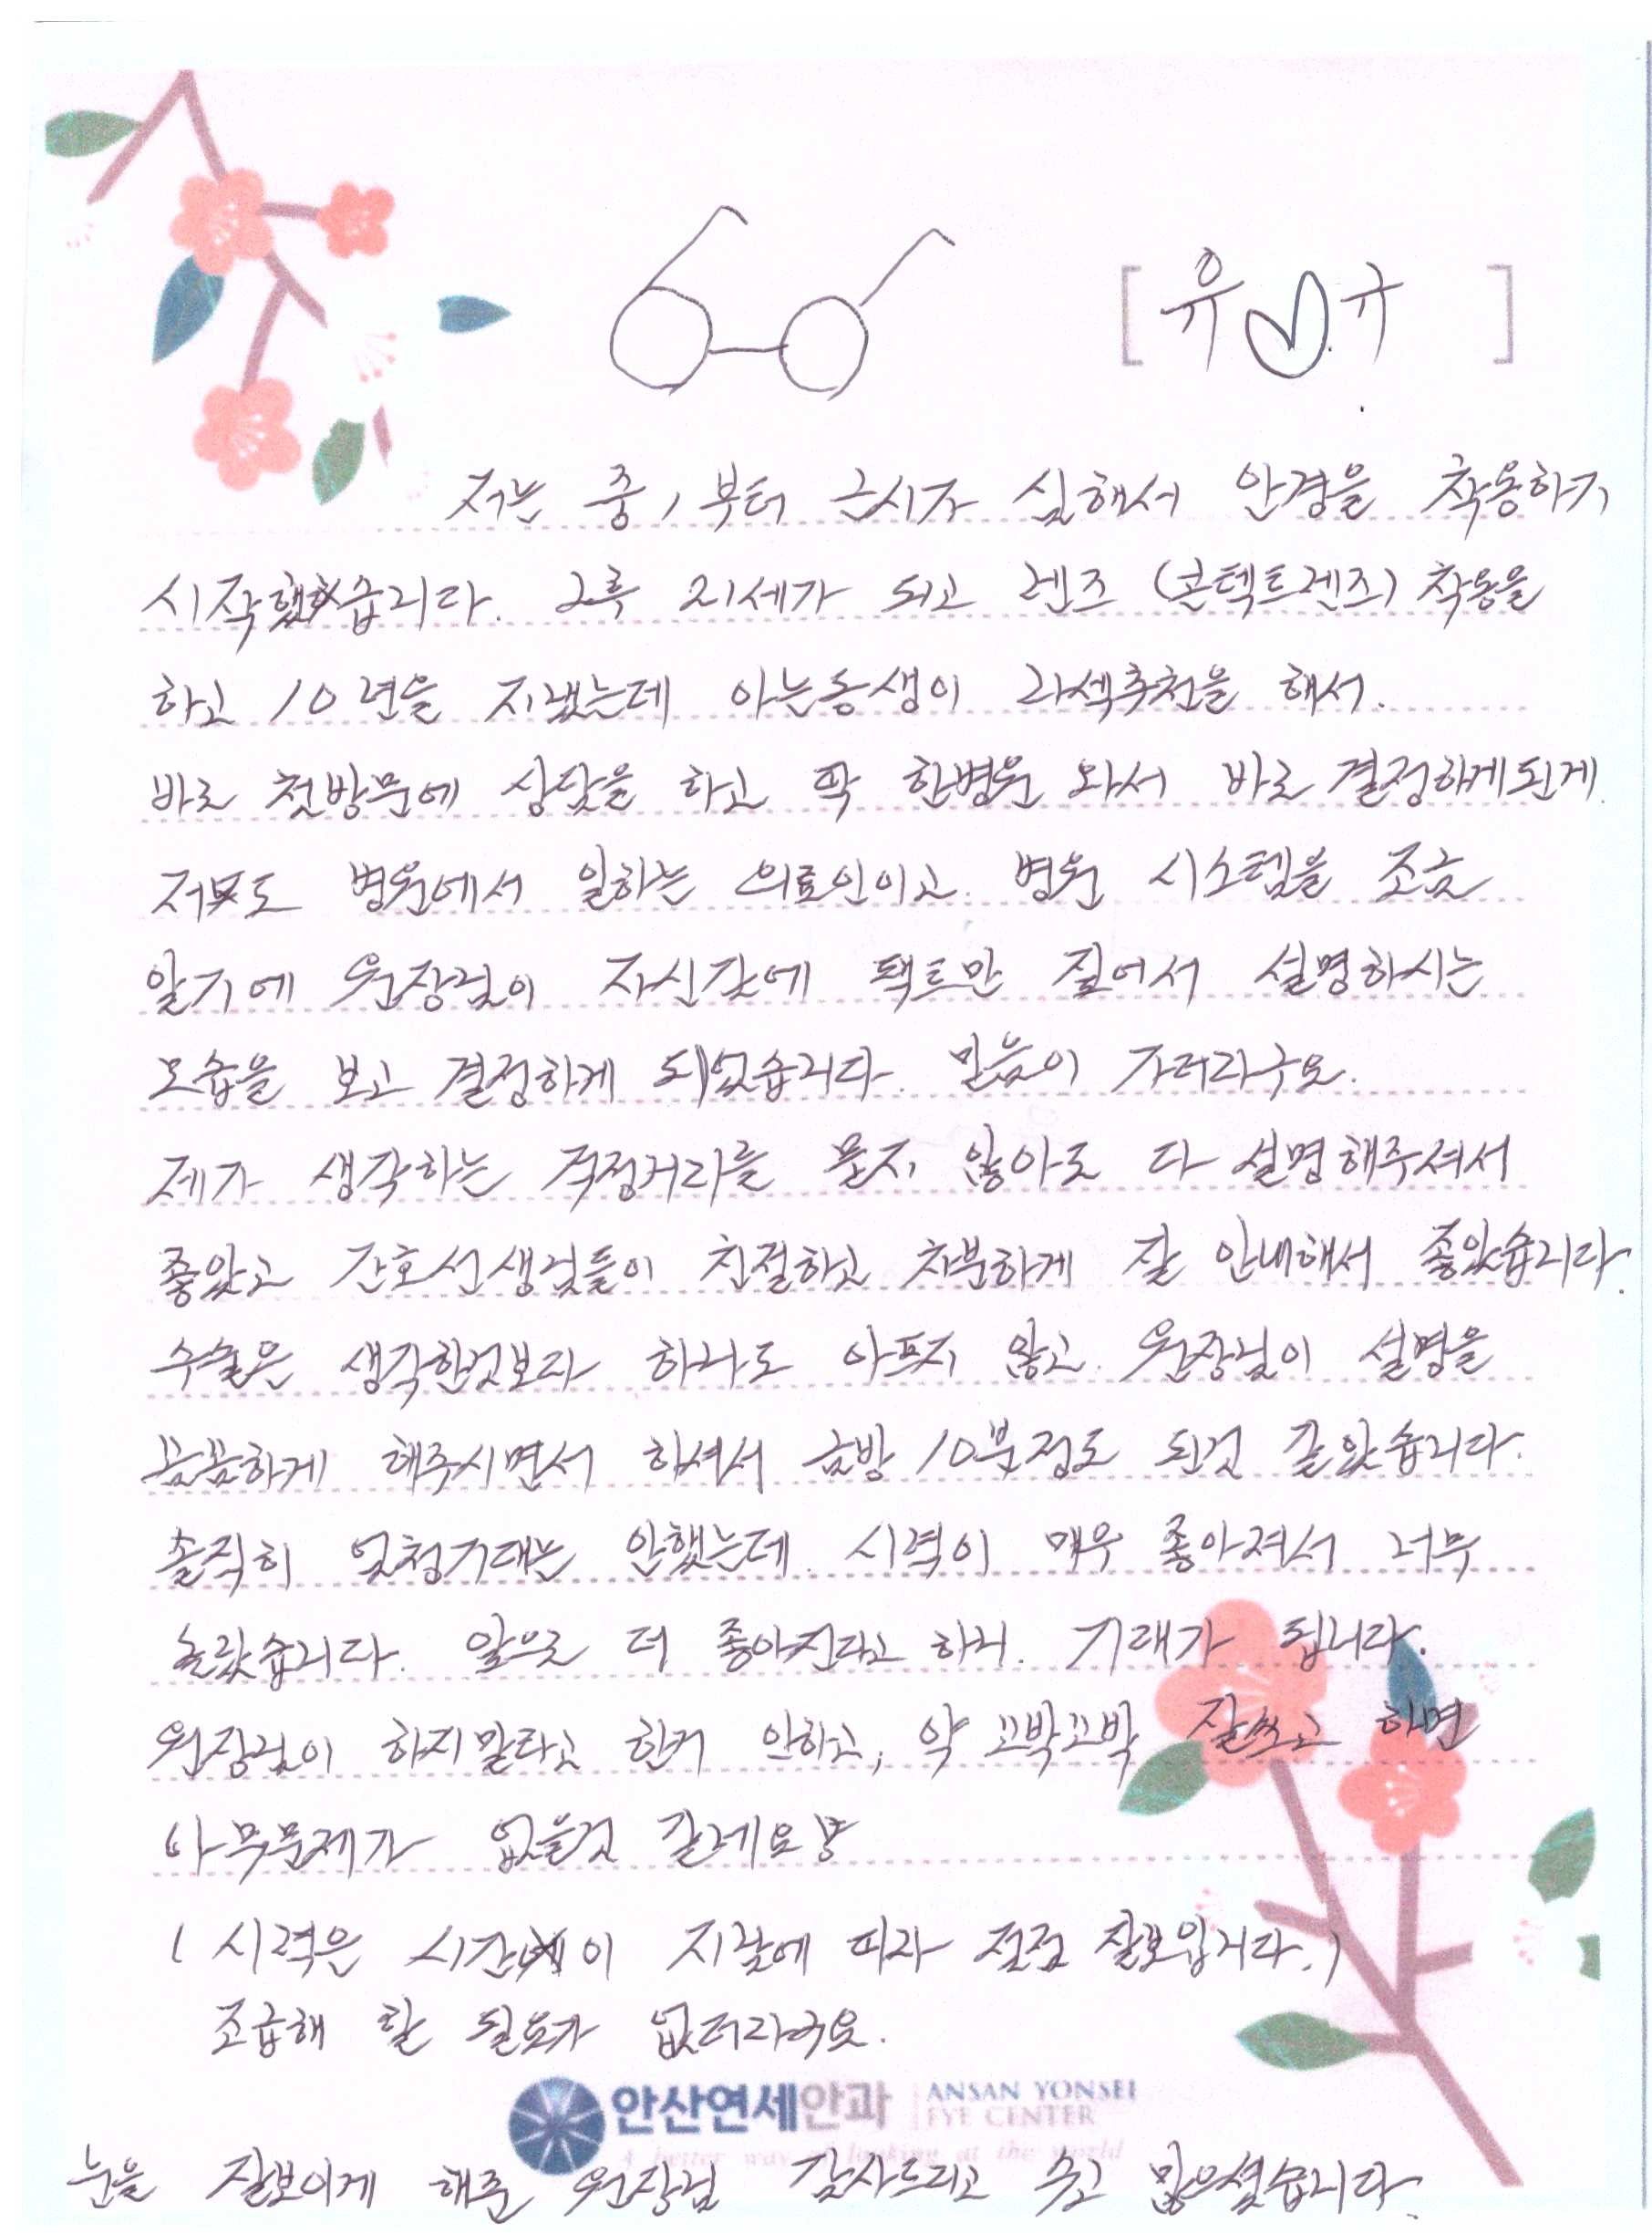 [ 유♡규 ]
저는 중1부터 근시가 심해서 안경을 착용하기
시작했습니다. 그후 21세가 되고 렌즈 (콘텍트렌즈) 착용을
하고 10년을 지냈는데 아는동생이 라섹추천을 해서.
바로 첫방문에 상담을 하고 딱 한병원 와서 바로 결정하게된게
저도 병원에서 일하는 의료인이고. 병원 시스템을 조금
알기에 원장님이 자신감에 팩트만 짚어서 설명하시는
모습을 보고 결정하게 되었습니다. 믿음이 가더라구요.
제가 생각하는 걱정거리를 묻지 않아도 다 설명해주셔서
좋았고 간호선생님들이 친절하고 차분하게 잘 안내해서 좋았습니다.
수술은 생각한것보다 하나도 아프지 않고. 원장님이 설명을
꼼꼼하게 해주시면서 하셔서 금방 10분정도 된것 같았습니다.
솔직히 엄청기대는 안했는데 시력이 매우 좋아져서 너무
놀랐습니다. 앞으로 더 좋아진다고 하니. 기대가 됩니다.
원장님이 하지말라고 한거 안하고, 약 꼬박꼬박 잘쓰고 하면
아무문제가 없을것 같네요
( 시력은 시간이 지남에 따라 점점 잘보입니다.)
조급해 할 필요가 없더라구요.
안산연세안과 ANSAN YONSEI
EYE CENTER
A better way of looking at the world
눈을 잘보이게 해준 원장님 감사드리고 수고 많으셨습니다.